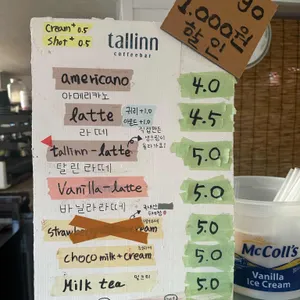 cream +0.5
shot +0.5
tallinn
coffeebar
go
1.000원
할인
americano 4.0
아메리카노
latte 귀리+1.0 4.5
라떼
tallinn-latte 5.0
탈린라떼
Vanilla-latte 5.0
바닐라라떼
Strawb 5.0
choco milk+cream 5.0
Milk tea 밀크티 5.0
McColl's
Vanilla
Ice Cream